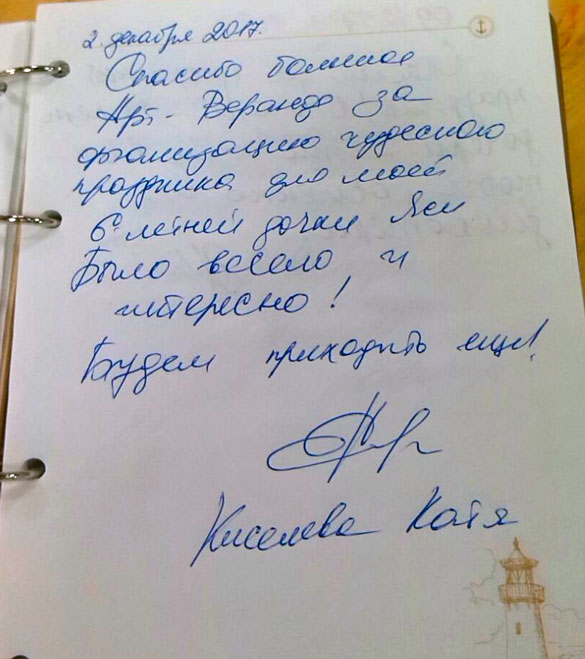 2. декабря 2017г.
Спасибо большое
Арт-Веранде за
организацию чудесного
праздника для моей
6-летней дочки Яси
Было весело и
интересно!
Будем приходить ещё!
Киселева Катя